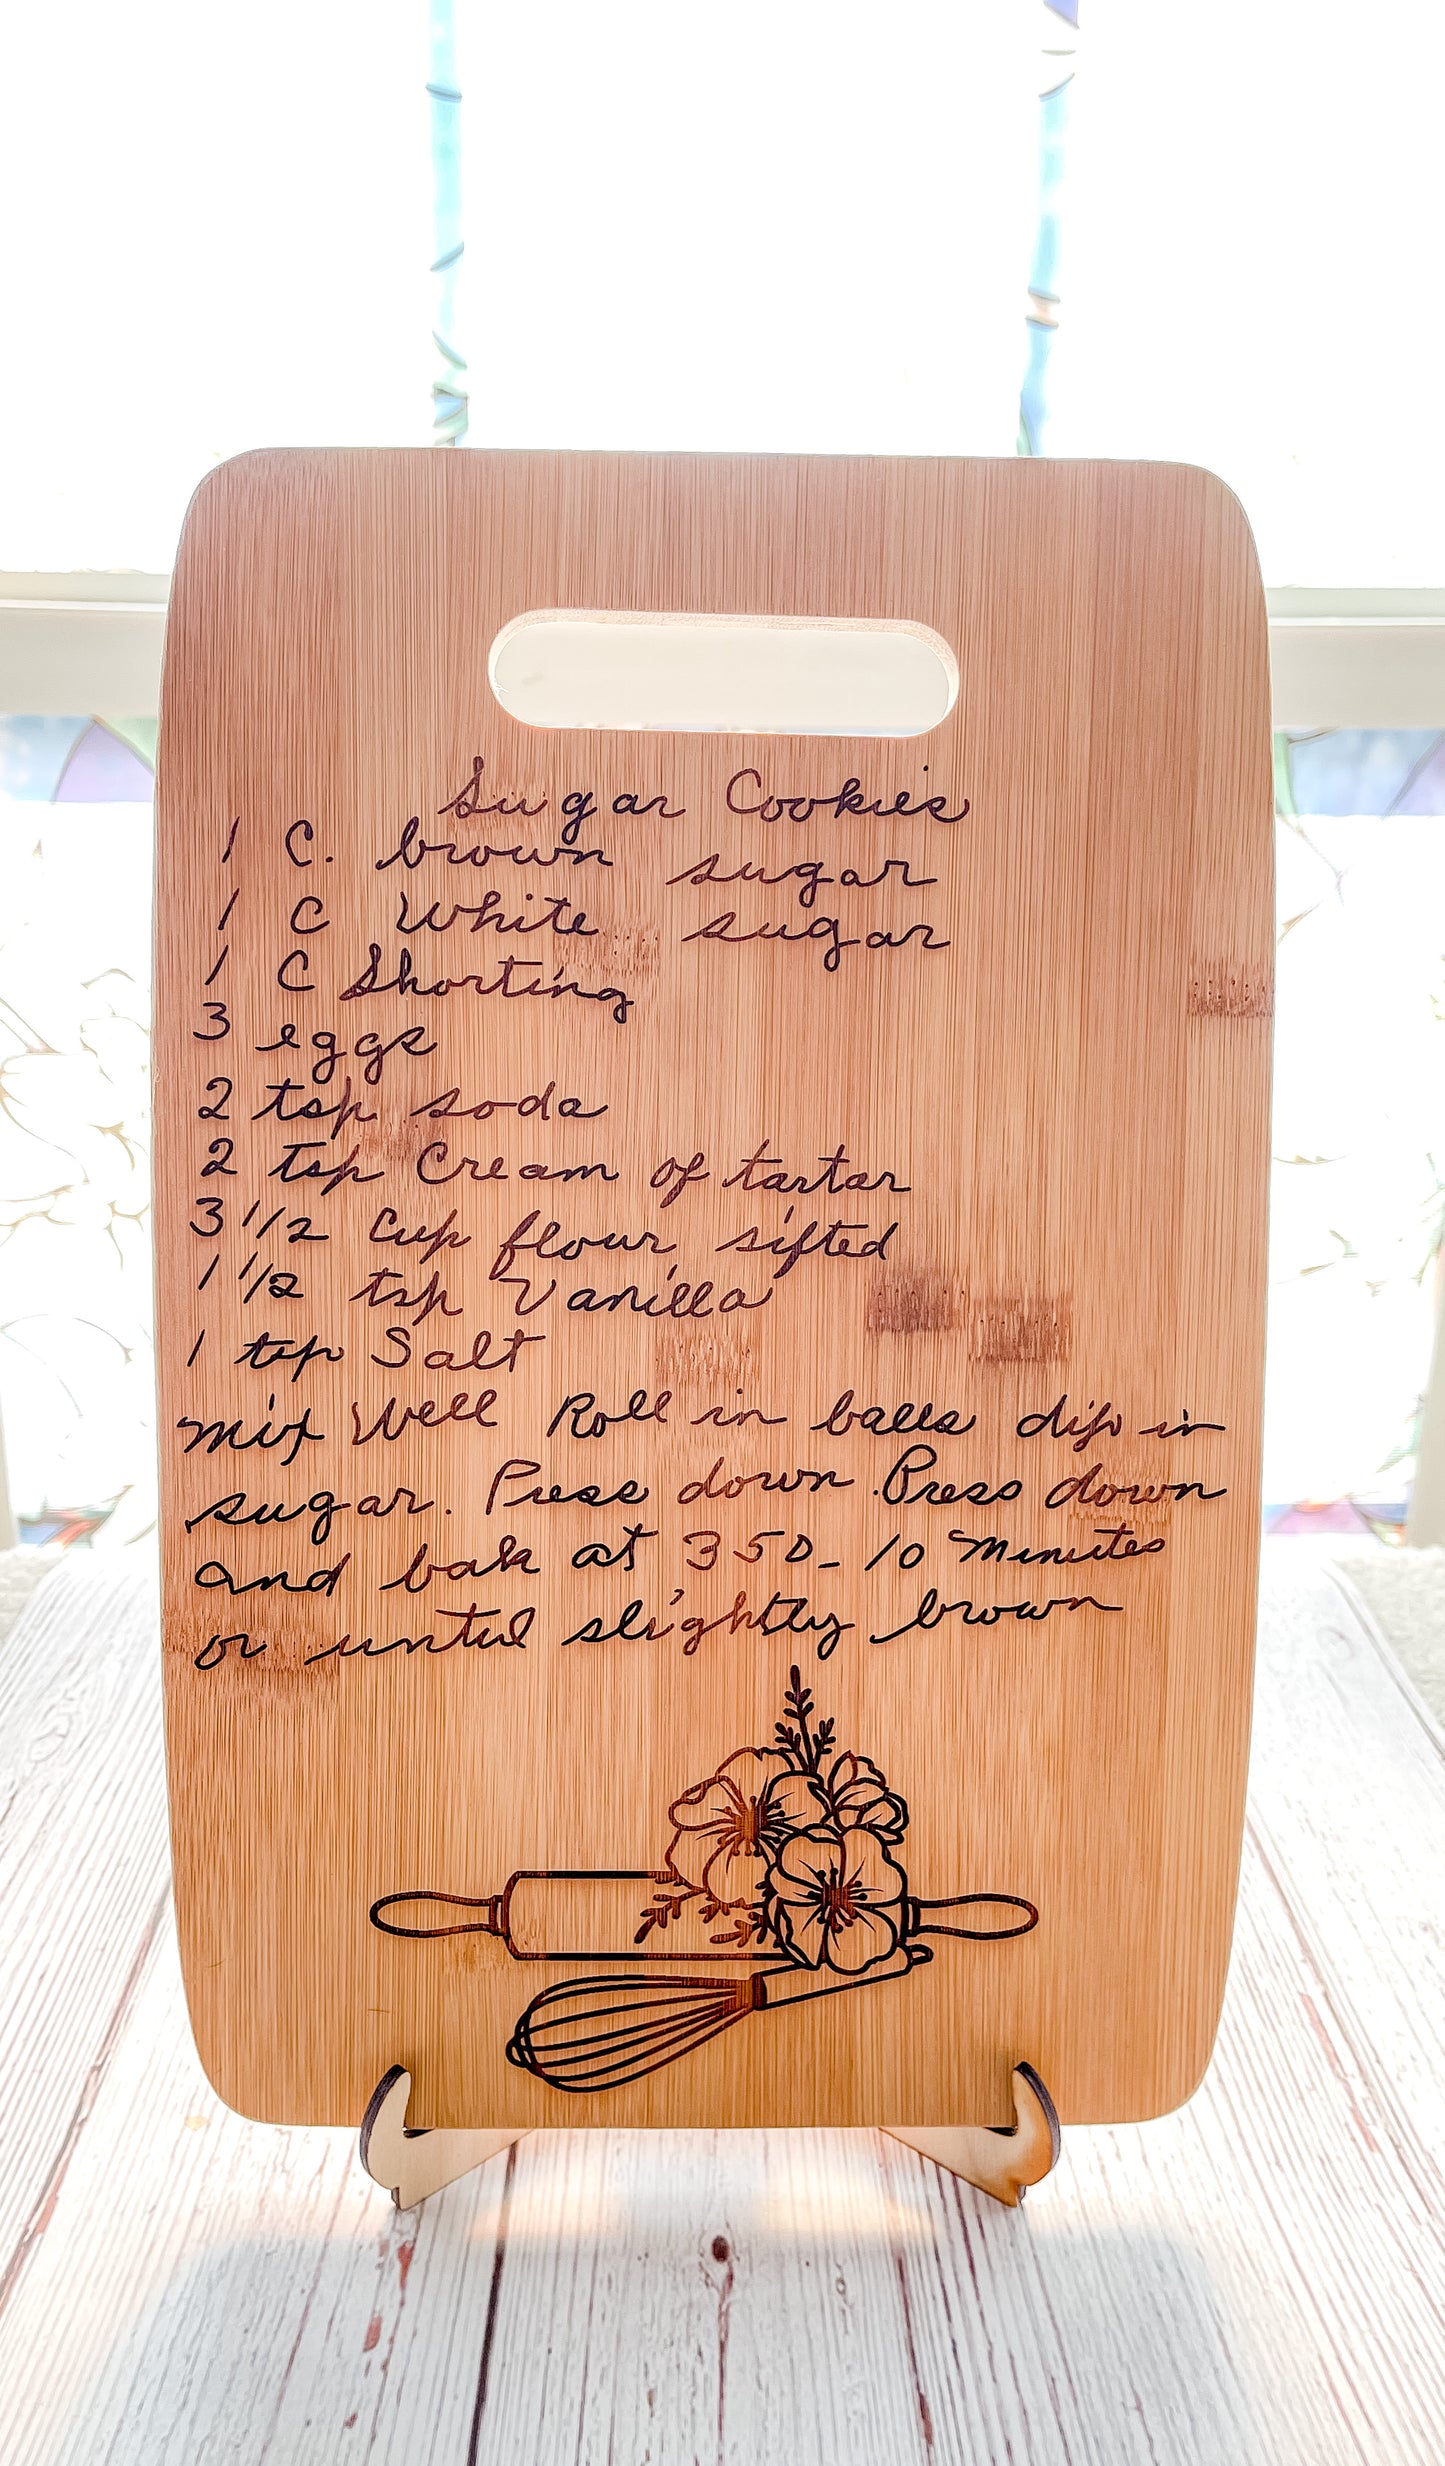 Sugar Cookies
1 C. brown sugar
1 C White sugar
1 C Shorting
3 eggs
2 tsp soda
2 tsp Cream of tartar
3 1/2 cup flour, sifted
1 1/2 tsp Vanilla
1 tsp Salt
Mix Well Roll in balls dip in
sugar. Press down. Press down
and bak at 350 - 10 Minutes
or until slightly brown